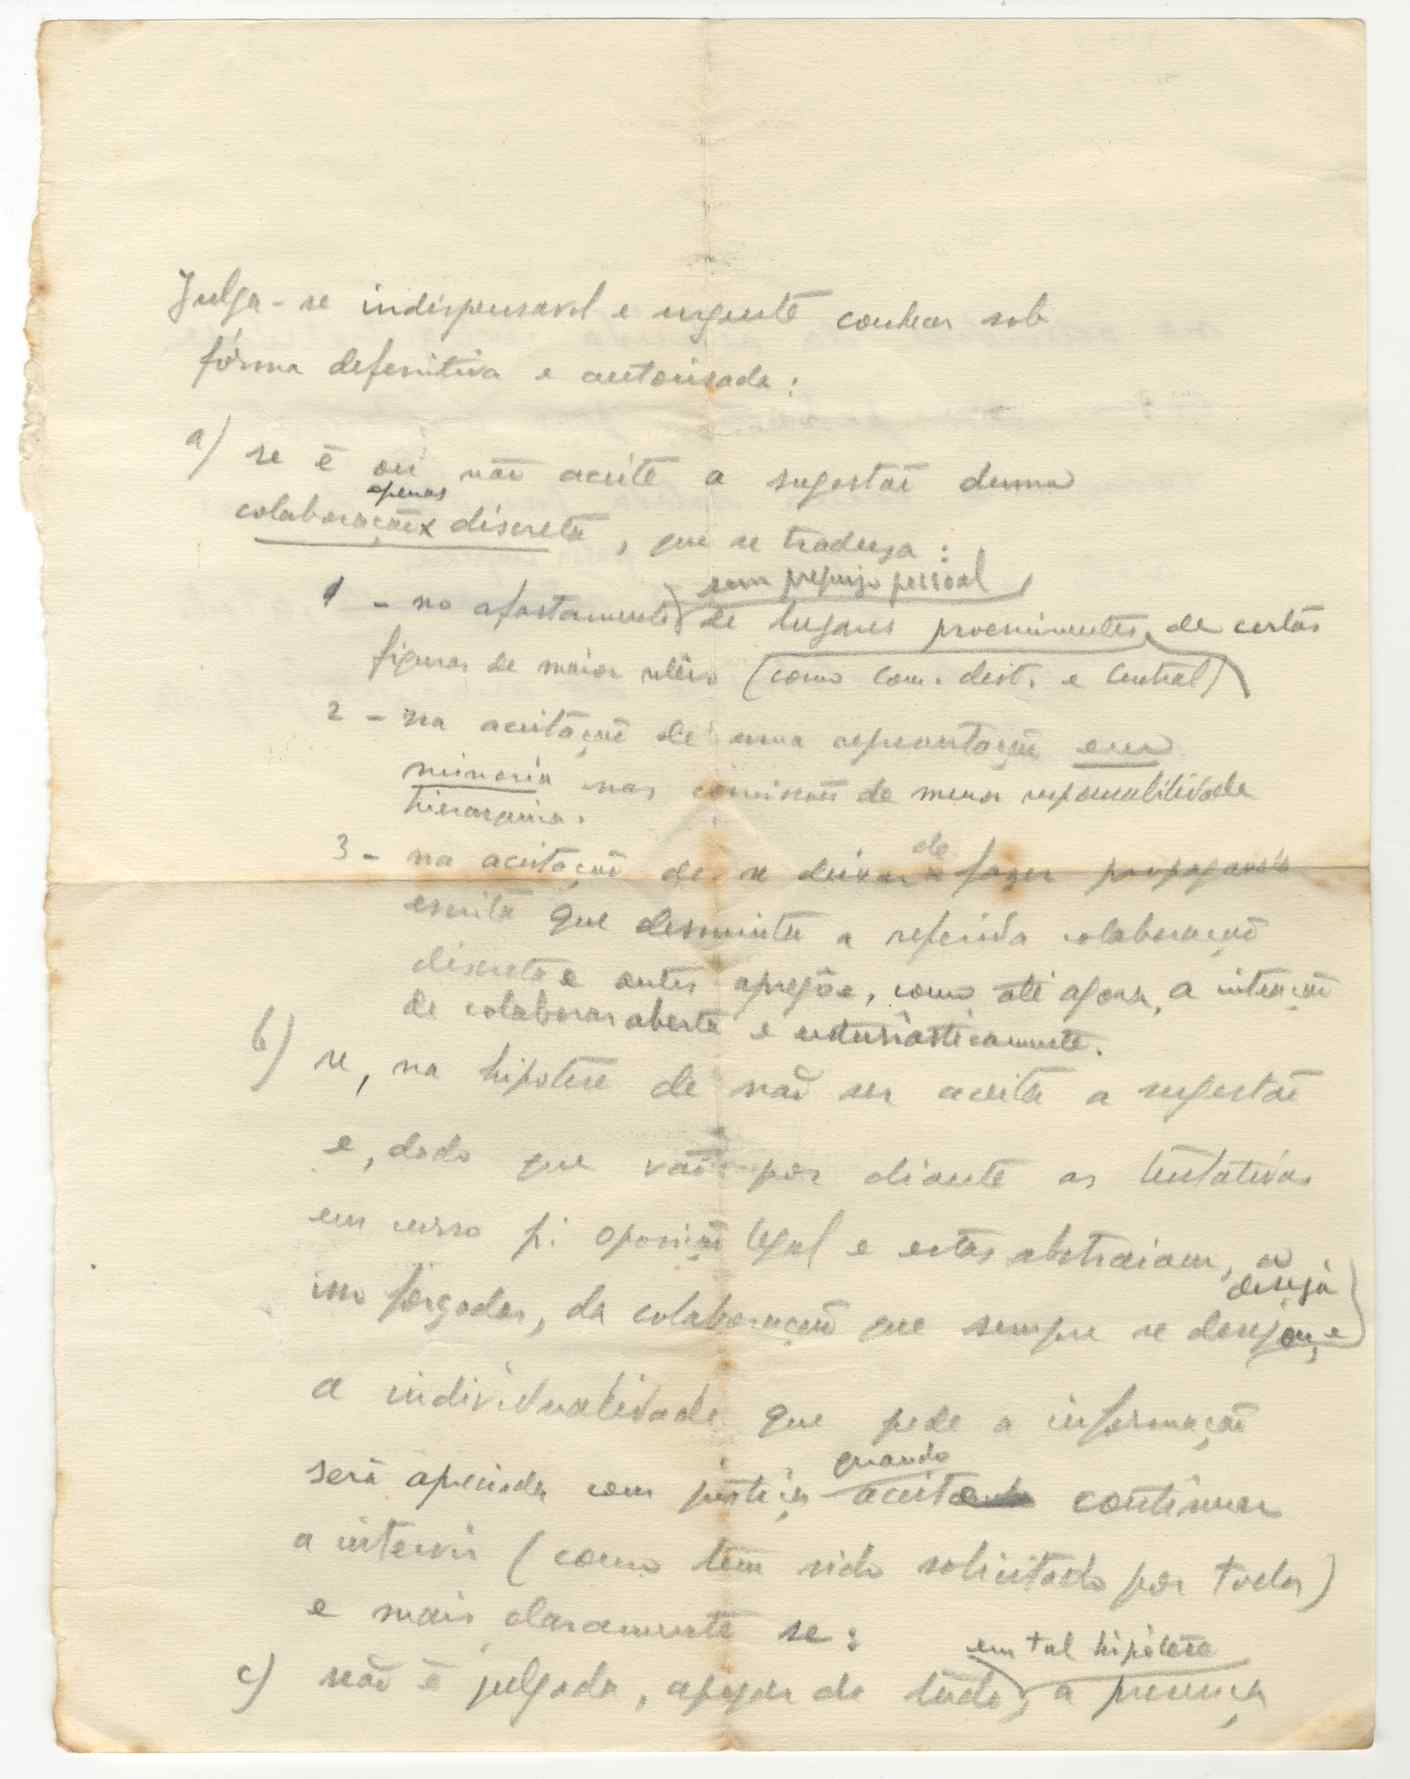 Julga-se indispensavel e urgente conhecer sob
fórma defenitiva e autorisada:
a) se é ou não aceite a sugestão duma
apenas
colaboração x discreta, que se traduza:
sem prejuizo pessoal
1 - no afastamento de lugares proeminentes, de certas
figuras de maior relêvo (como com. dist. e Central)
2 - na aceitação de uma representação em
minoria nas comissões de menor responsabilidade
hierarquica.
de
3 - na aceitação de se deixar fazer propaganda
escrita que desminta a referida colaboração
discreta e antes apregôe, como até agora, a intenção
de colaborar aberta e entusiasticamente.
b) se, na hipotese de não ser aceite a sugestão
e, dado que vão por diante as tentativas
em curso p: oposição legal e estas abstraiam, a
isso forçadas, da colaboração que sempre se desejou, e
deseja
a individualidade que pede a informação
será apreciada com justiça
quando
aceita continuar
a intervir (como tem sido solicitado por todos)
e mais claramente se:
em tal hipótese
c) não é julgada, apezar de tudo, a presença